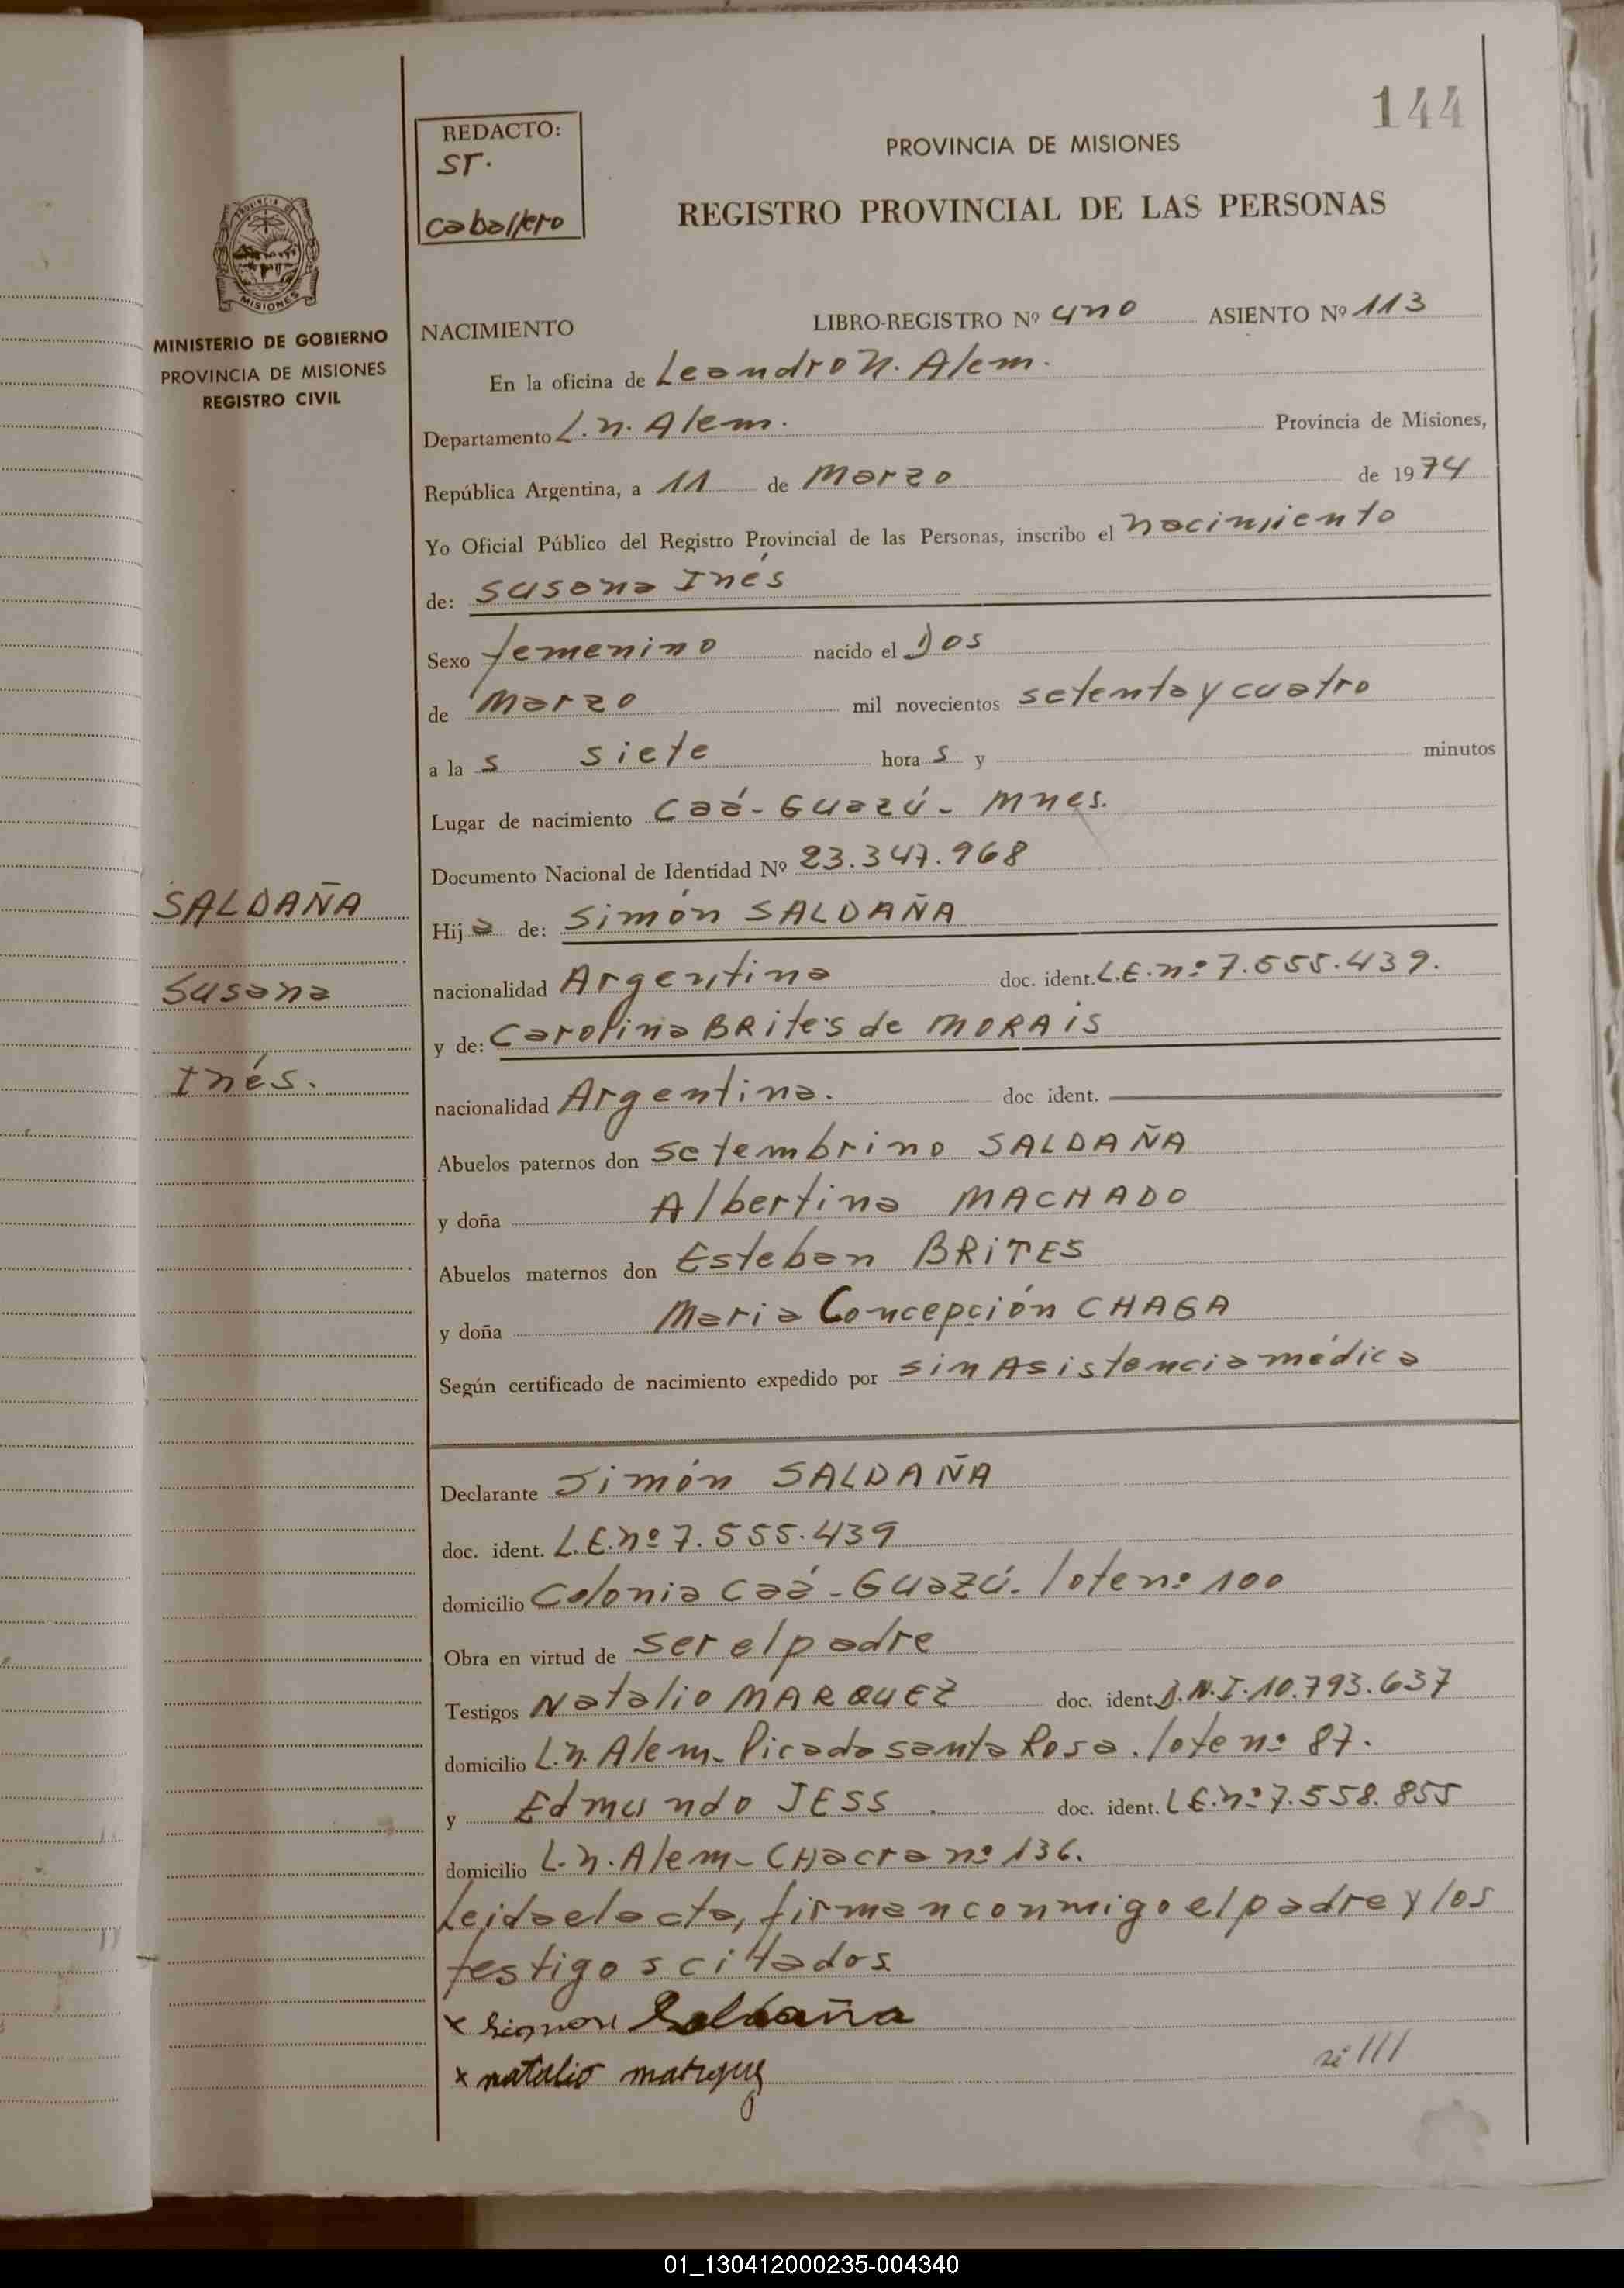 144
REDACTO:
ST.
Caballero
PROVINCIA DE MISIONES
REGISTRO PROVINCIAL DE LAS PERSONAS
PROVINCIA DE
MISIONES
MINISTERIO DE GOBIERNO
PROVINCIA DE MISIONES
REGISTRO CIVIL
NACIMIENTO LIBRO-REGISTRO Nº uno ASIENTO Nº 113
En la oficina de Leandro N. Alem.
Departamento L. N. Alem. Provincia de Misiones,
República Argentina, a 11 de Marzo de 1974
Yo Oficial Público del Registro Provincial de las Personas, inscribo el nacimiento
de: Susana Inés
Sexo femenino nacido el Dos
de Marzo mil novecientos setenta y cuatro
a la s siete hora s y minutos
Lugar de nacimiento Caá-Guazú- Mnes.
Documento Nacional de Identidad Nº 23.347.968
SALDAÑA
Susana
Inés.
Hij a de: Simón SALDAÑA
nacionalidad Argentina doc. ident. L.E.nº 7.555.439.
y de: Carolina BRites de MORAiS
nacionalidad Argentina. doc ident.
Abuelos paternos don Setembrino SALDAÑA
y doña Albertina MACHADO
Abuelos maternos don Esteban BRiTES
y doña Maria Concepción CHAGA
Según certificado de nacimiento expedido por sin Asistencia médica
Declarante Simón SALDAÑA
doc. ident. L.E.nº 7.555.439
domicilio Colonia Caá-Guazú. lote nº 100
Obra en virtud de ser el padre
Testigos Natalio MARQUEZ doc. ident. D.N.I. 10.793.637
domicilio L.N. Alem- Picada santa Rosa. lote nº 87.
y Edmundo JESS . doc. ident. L.E.nº 7.558.855
domicilio L.N. Alem- CHacra nº 136.
Leida el acta, firman conmigo el padre y los
testigos citados.
x Simon Saldaña
x natalio marquez
111
01_130412000235-004340